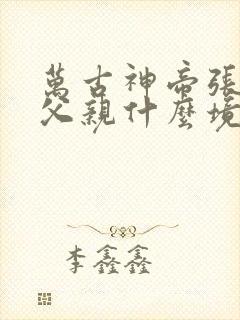 萬古神帝張
父親什麼境
李鑫鑫